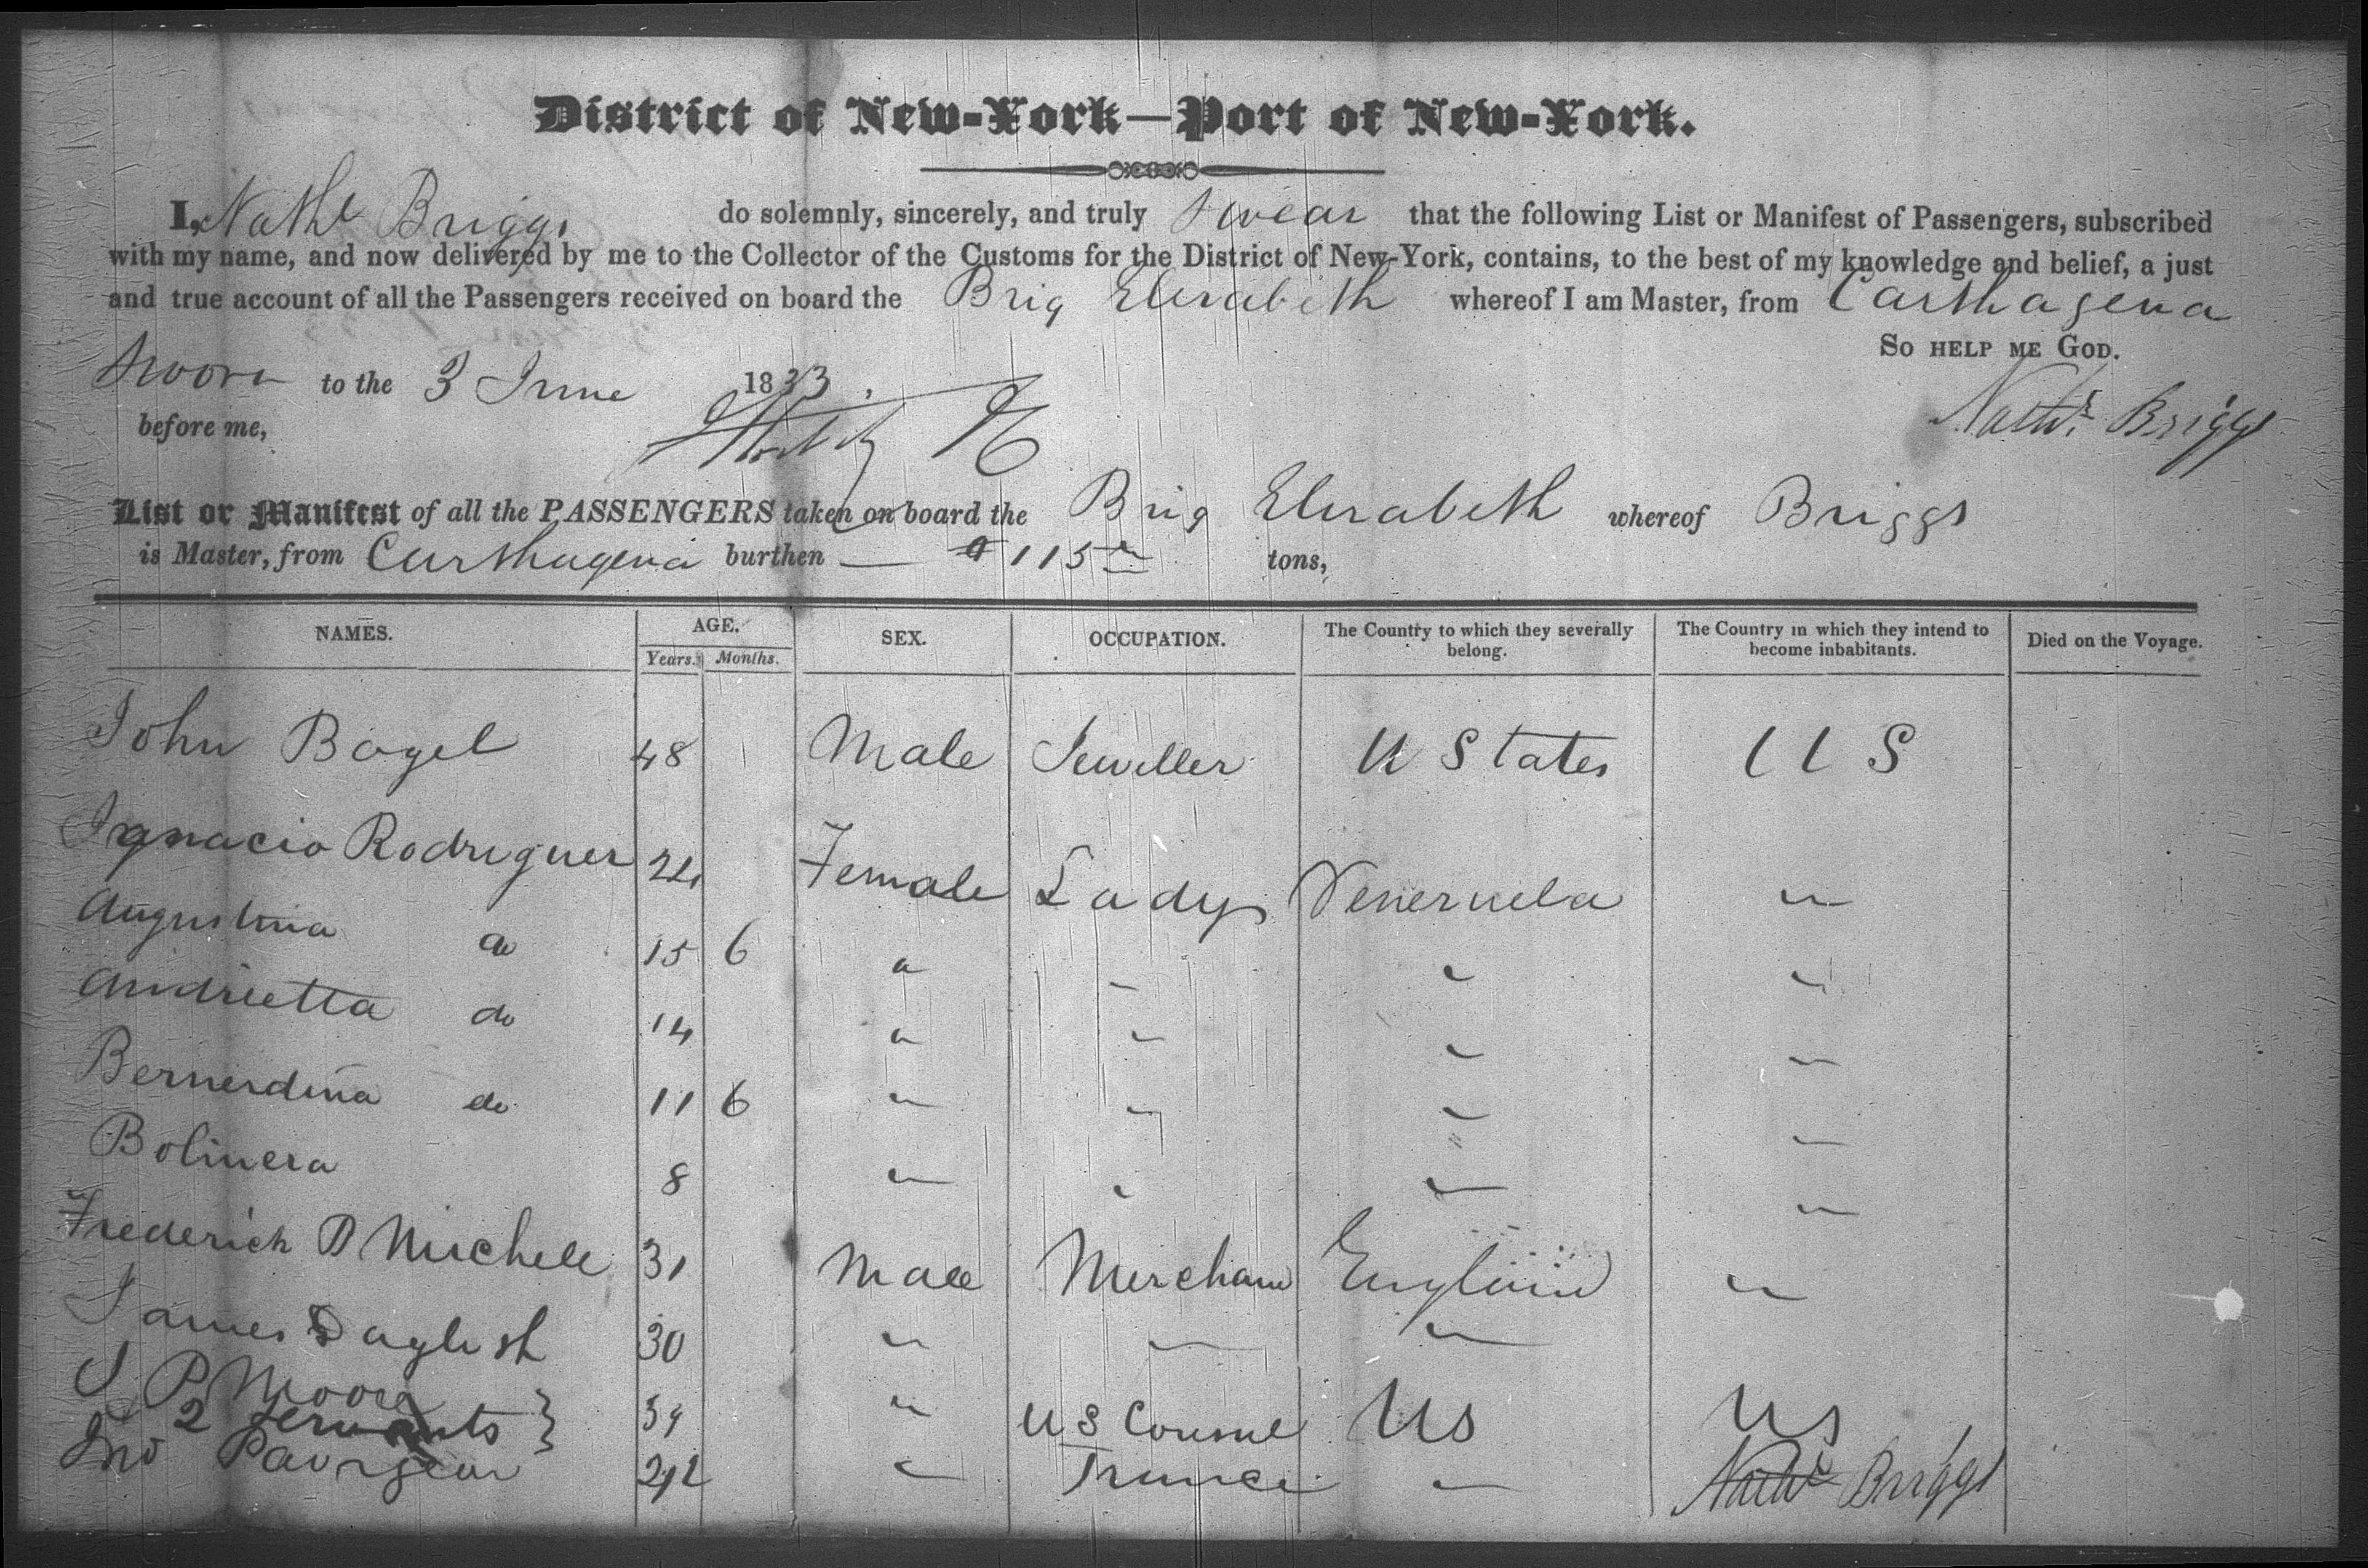 District of New-York—Port of New-York.
I, Nathl Briggs do solemnly, sincerely, and truly swear that the following List or Manifest of Passengers, subscribed
with my name, and now delivered by me to the Collector of the Customs for the District of New-York, contains, to the best of my knowledge and belief, a just
and true account of all the Passengers received on board the Brig Elizabeth whereof I am Master, from Carthagena
So help me God.
Sworn to the 3 June 1833.
before me,
Nathl Briggs
List or Manifest of all the PASSENGERS taken on board the Brig Elizabeth whereof Briggs
is Master, from Carthagena burthen 115 tons,
NAMES. AGE. SEX. OCCUPATION. The Country to which they severally belong. The Country in which they intend to become inhabitants. Died on the Voyage.
Years. Months.
John Bogel 48 Male Jeweller U States U S
Ignacio Rodriguez 24 Female Ladys Venezuela "
Augustina do 15 6 " " " "
Andrietta do 14 " " " "
Bernerdina do 11 6 " " " "
Bolinera 8 " " " "
Frederick D Michell 31 Male Merchant England "
James Daglish 30 " " "
J P Moore 39 " U S Consul US US
2 servants
Jno 24 " France "
Nathl Briggs